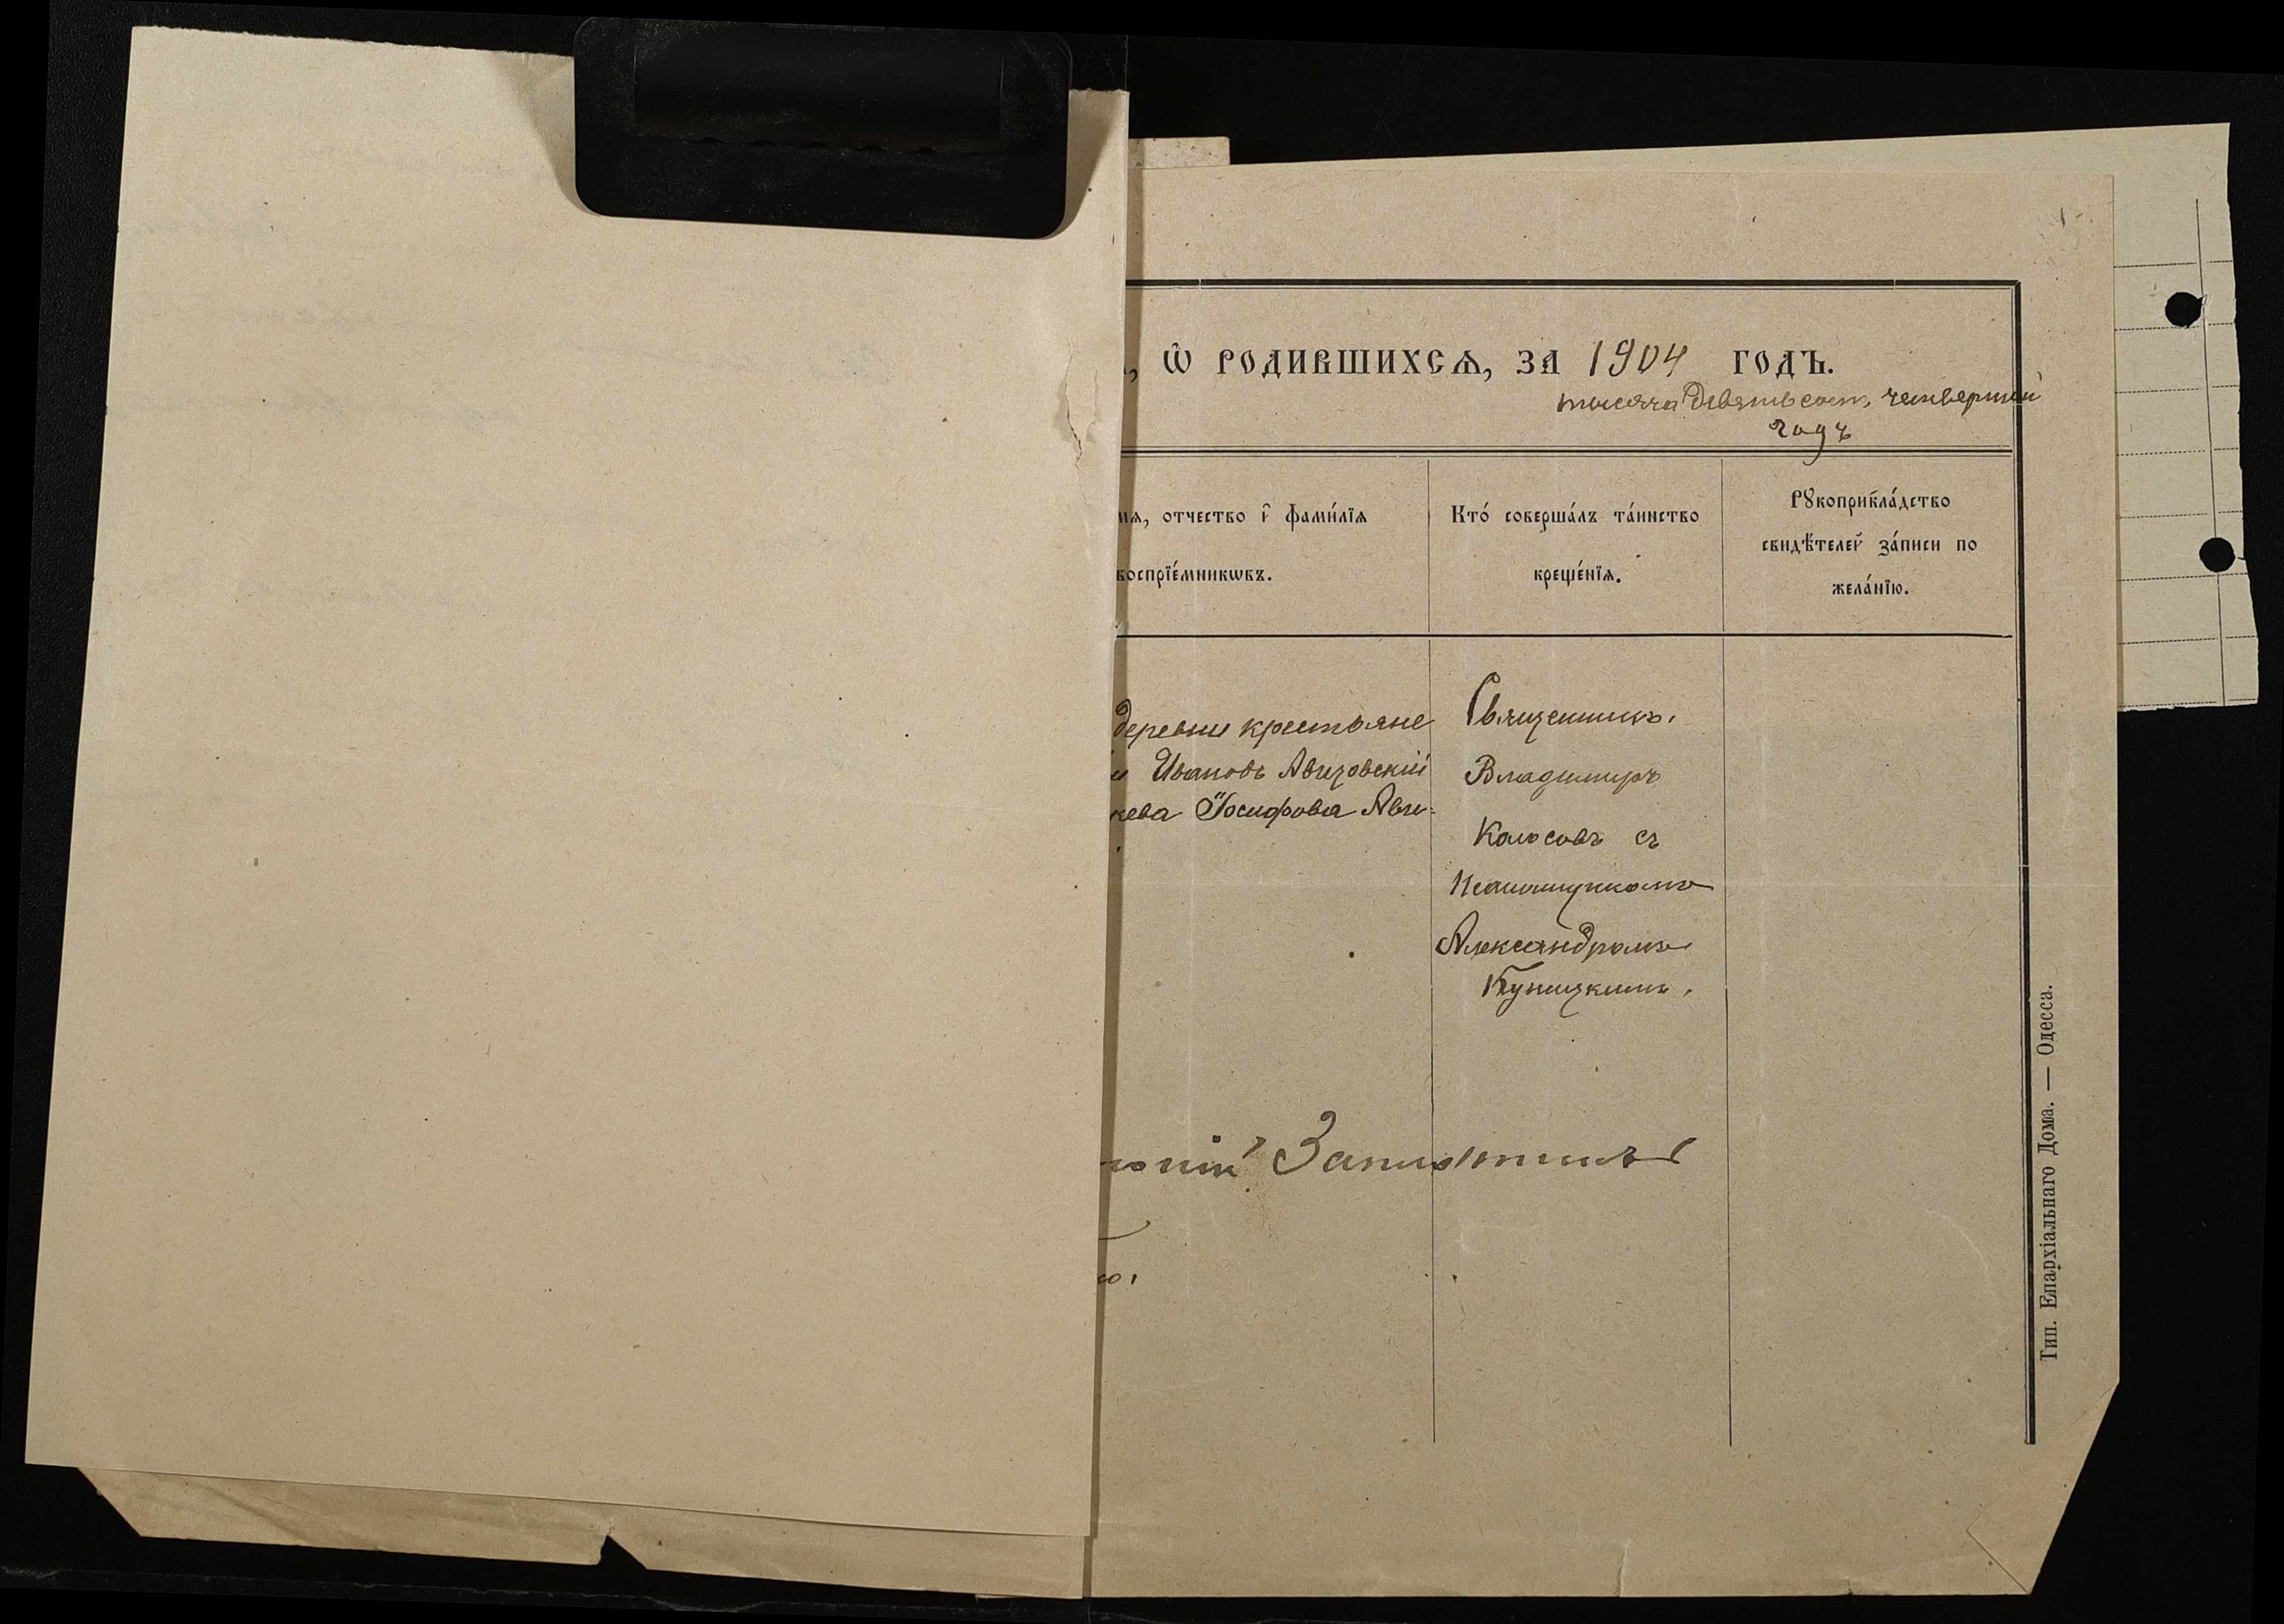 , ѿ родившихсѧ, за 1904 годъ.
тысяча девятьсотъ четвертый
годъ
мѧ, отчество и҆ фами́лїѧ
воспрїе́мникѡвъ.
Кто́ соверша́лъ та́инство
креще́нїѧ.
Рꙋкоприкла́дство
свидѣ́телей за́писи по
жела́нїю.
деревни крестьяне
и Ивановъ Авизовскій
кева Іосифова Ави-
Священникъ
Владимиръ
Колосовъ съ
Псаломщикомъ
Александромъ
Куницкимъ.
Тип. Епархіальнаго Дома. — Одесса.